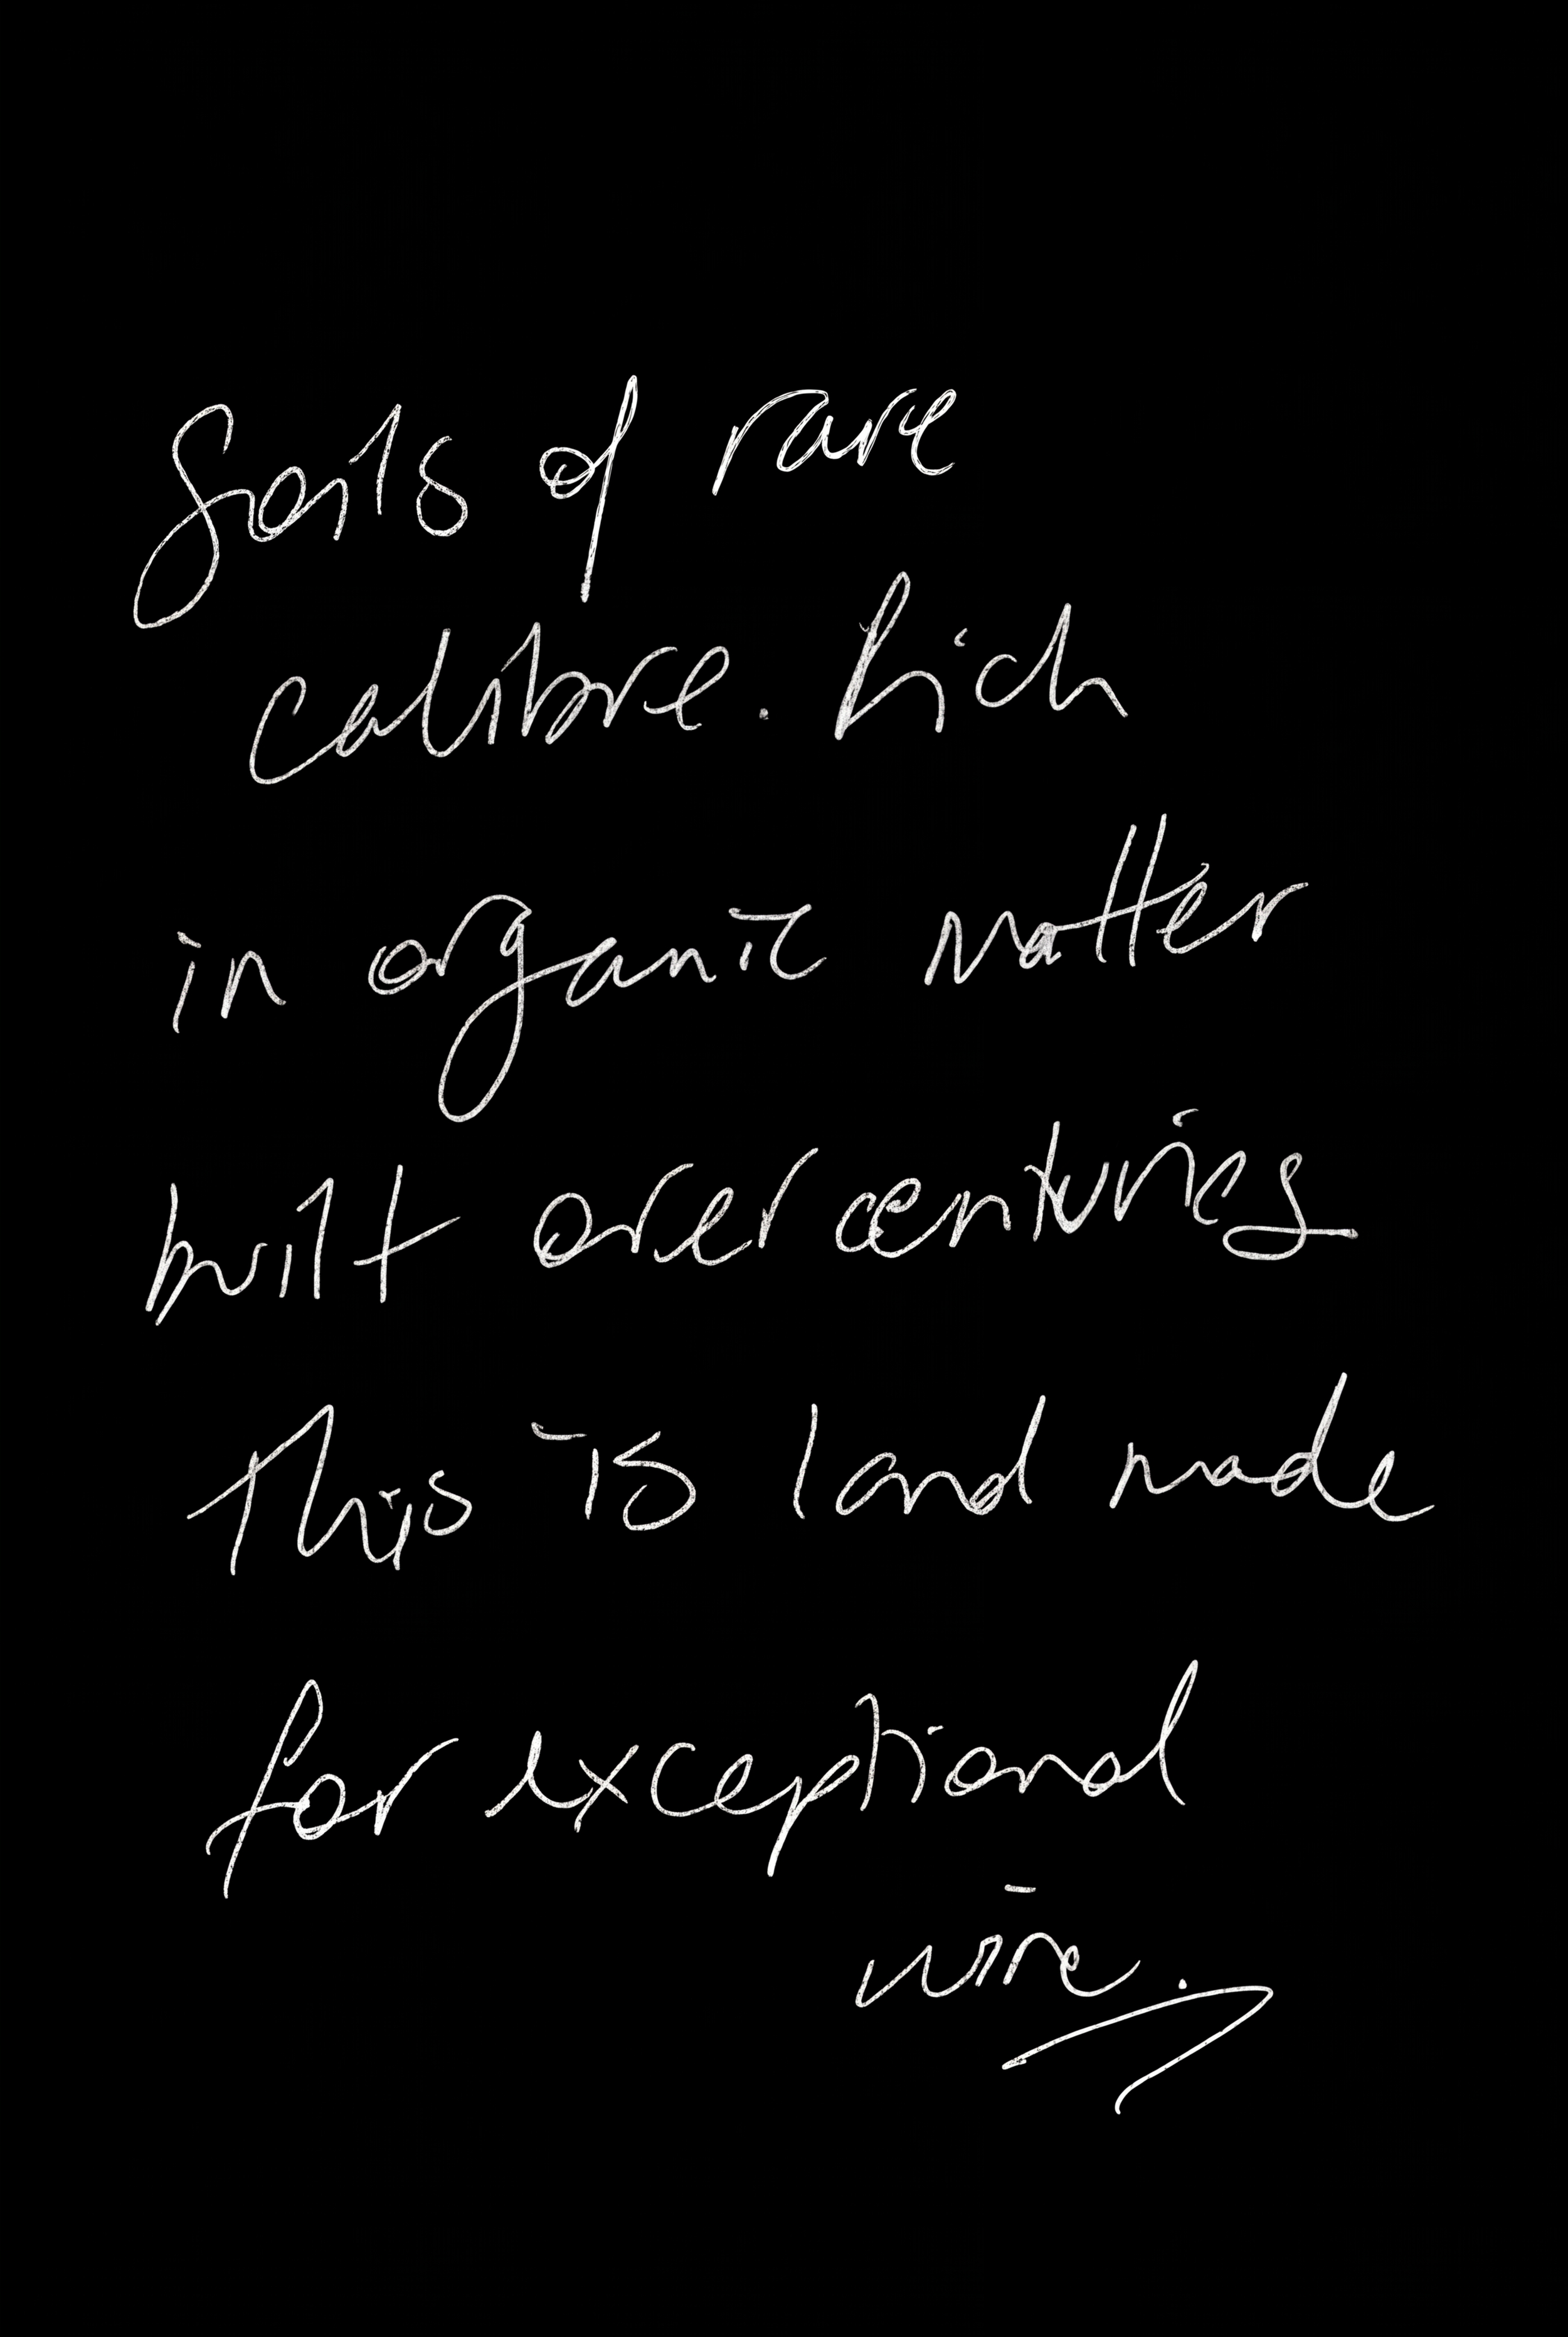 Soils of rare
calibre. Rich
in organic matter
built over centuries
This is land made
for exceptional
wine.